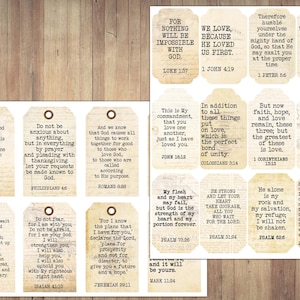 FOR
NOTHING
WILL BE
IMPOSSIBLE
WITH
GOD.
LUKE 1:37
WE LOVE,
BECAUSE
HE LOVED
US FIRST.
1 JOHN 4:19
Therefore
humble
yourselves
under the
mighty hand
of God, so
that He
may exalt you
at the proper
time
1 PETER 5:6
Do not be
anxious about
anything,
but in everything
by prayer
and pleading with
thanksgiving
let your requests
be made known to
God.
PHILIPPIANS 4:6
And we know
that God causes
all things to
work together
for good
to those who
love God,
to those who
are called
according to
His purpose.
ROMANS 8:28
This is My
commandment,
that you
love one
another,
just as I
have loved
you.
JOHN 15:12
In addition
to all
these things
put
on love,
which is
the perfect
bond
of unity.
COLOSSIANS 3:14
But now
faith, hope,
and love
remain, these
three; but
the greatest
of these
is love.
1 CORINTHIANS
13:13
Do not fear,
for I am with you;
Do not be afraid,
for I am your God.
I will
strengthen you,
I will also
help you,
I will also
uphold you
with My
righteous right
hand.
ISAIAH 41:10
'For I know
the plans that I
have for you,'
declares the Lord,
'plans for
prosperity
and not for
disaster, to
give you a future
and a hope.'
JEREMIAH 29:11
My flesh
and my
heart
may fail,
but God is the
strength of my
heart and my
portion forever.
PSALM 73:26
BE STRONG
AND LET YOUR
HEART
TAKE COURAGE,
ALL YOU
WHO WAIT
FOR THE LORD.
PSALM 31:24
He alone
is my
rock and
my salvation,
my refuge;
I will not
be shaken.
PSALM 62:6
it will
be yours.
MARK 11:24